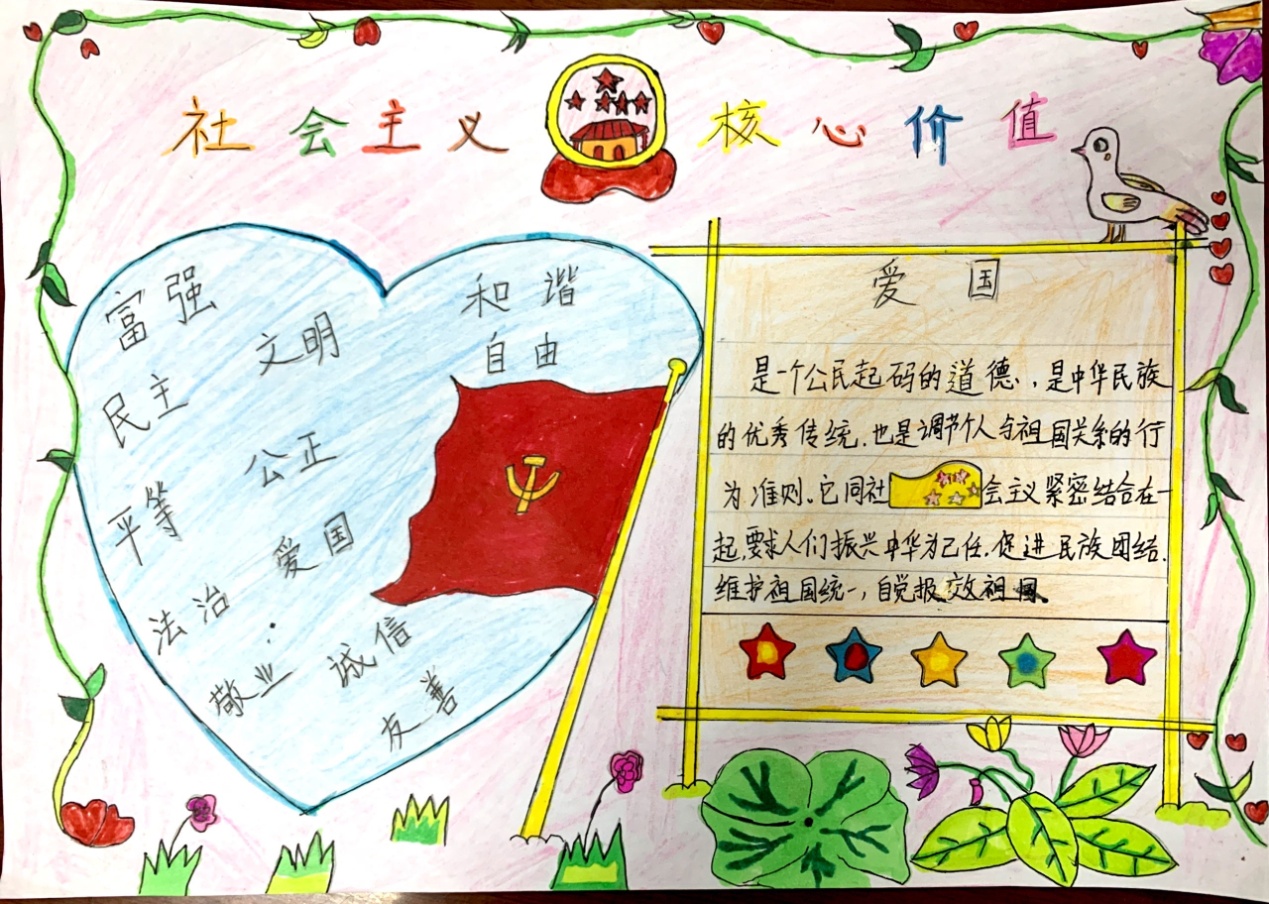 社会主义核心价值
富强
文明
和谐
自由
民主
公正
平等
爱国
法治
敬业
诚信
友善
爱国
是一个公民起码的道德,是中华民族
的优秀传统.也是调节个人与祖国关系的行
为准则。它同社会主义紧密结合在一
起,要求人们振兴中华为己任.促进民族团结.
维护祖国统一,自觉报效祖国。